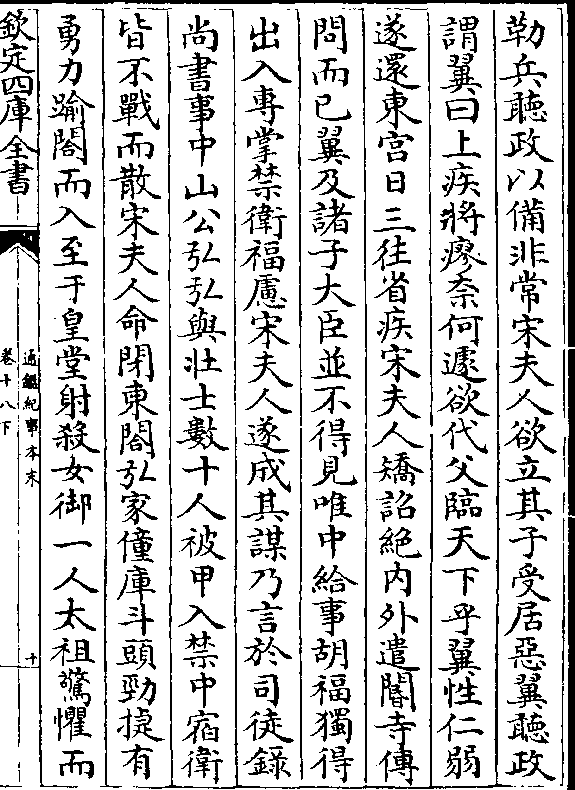 勒兵聽政以備非常宋夫人欲立其子受居惡翼聽政
謂翼曰上疾將瘳柰何遽欲代父臨天下乎翼性仁弱
遂還東宮日三往省疾宋夫人矯詔絕内外遣閽寺傳
問而已翼及諸子大臣並不得見唯中給事胡福獨得
出入專掌禁衛福慮宋夫人遂成其謀乃言於司徒錄
尚書事中山公弘弘與壯士數十人被甲入禁中宿衛
皆不戰而散宋夫人命閉東閤弘家僮庫斗頭勁捷有
勇力踰閤而入至于皇堂射殺女御一人太祖驚懼而
欽定四庫全書
通鑑紀事本末
卷十八下
十